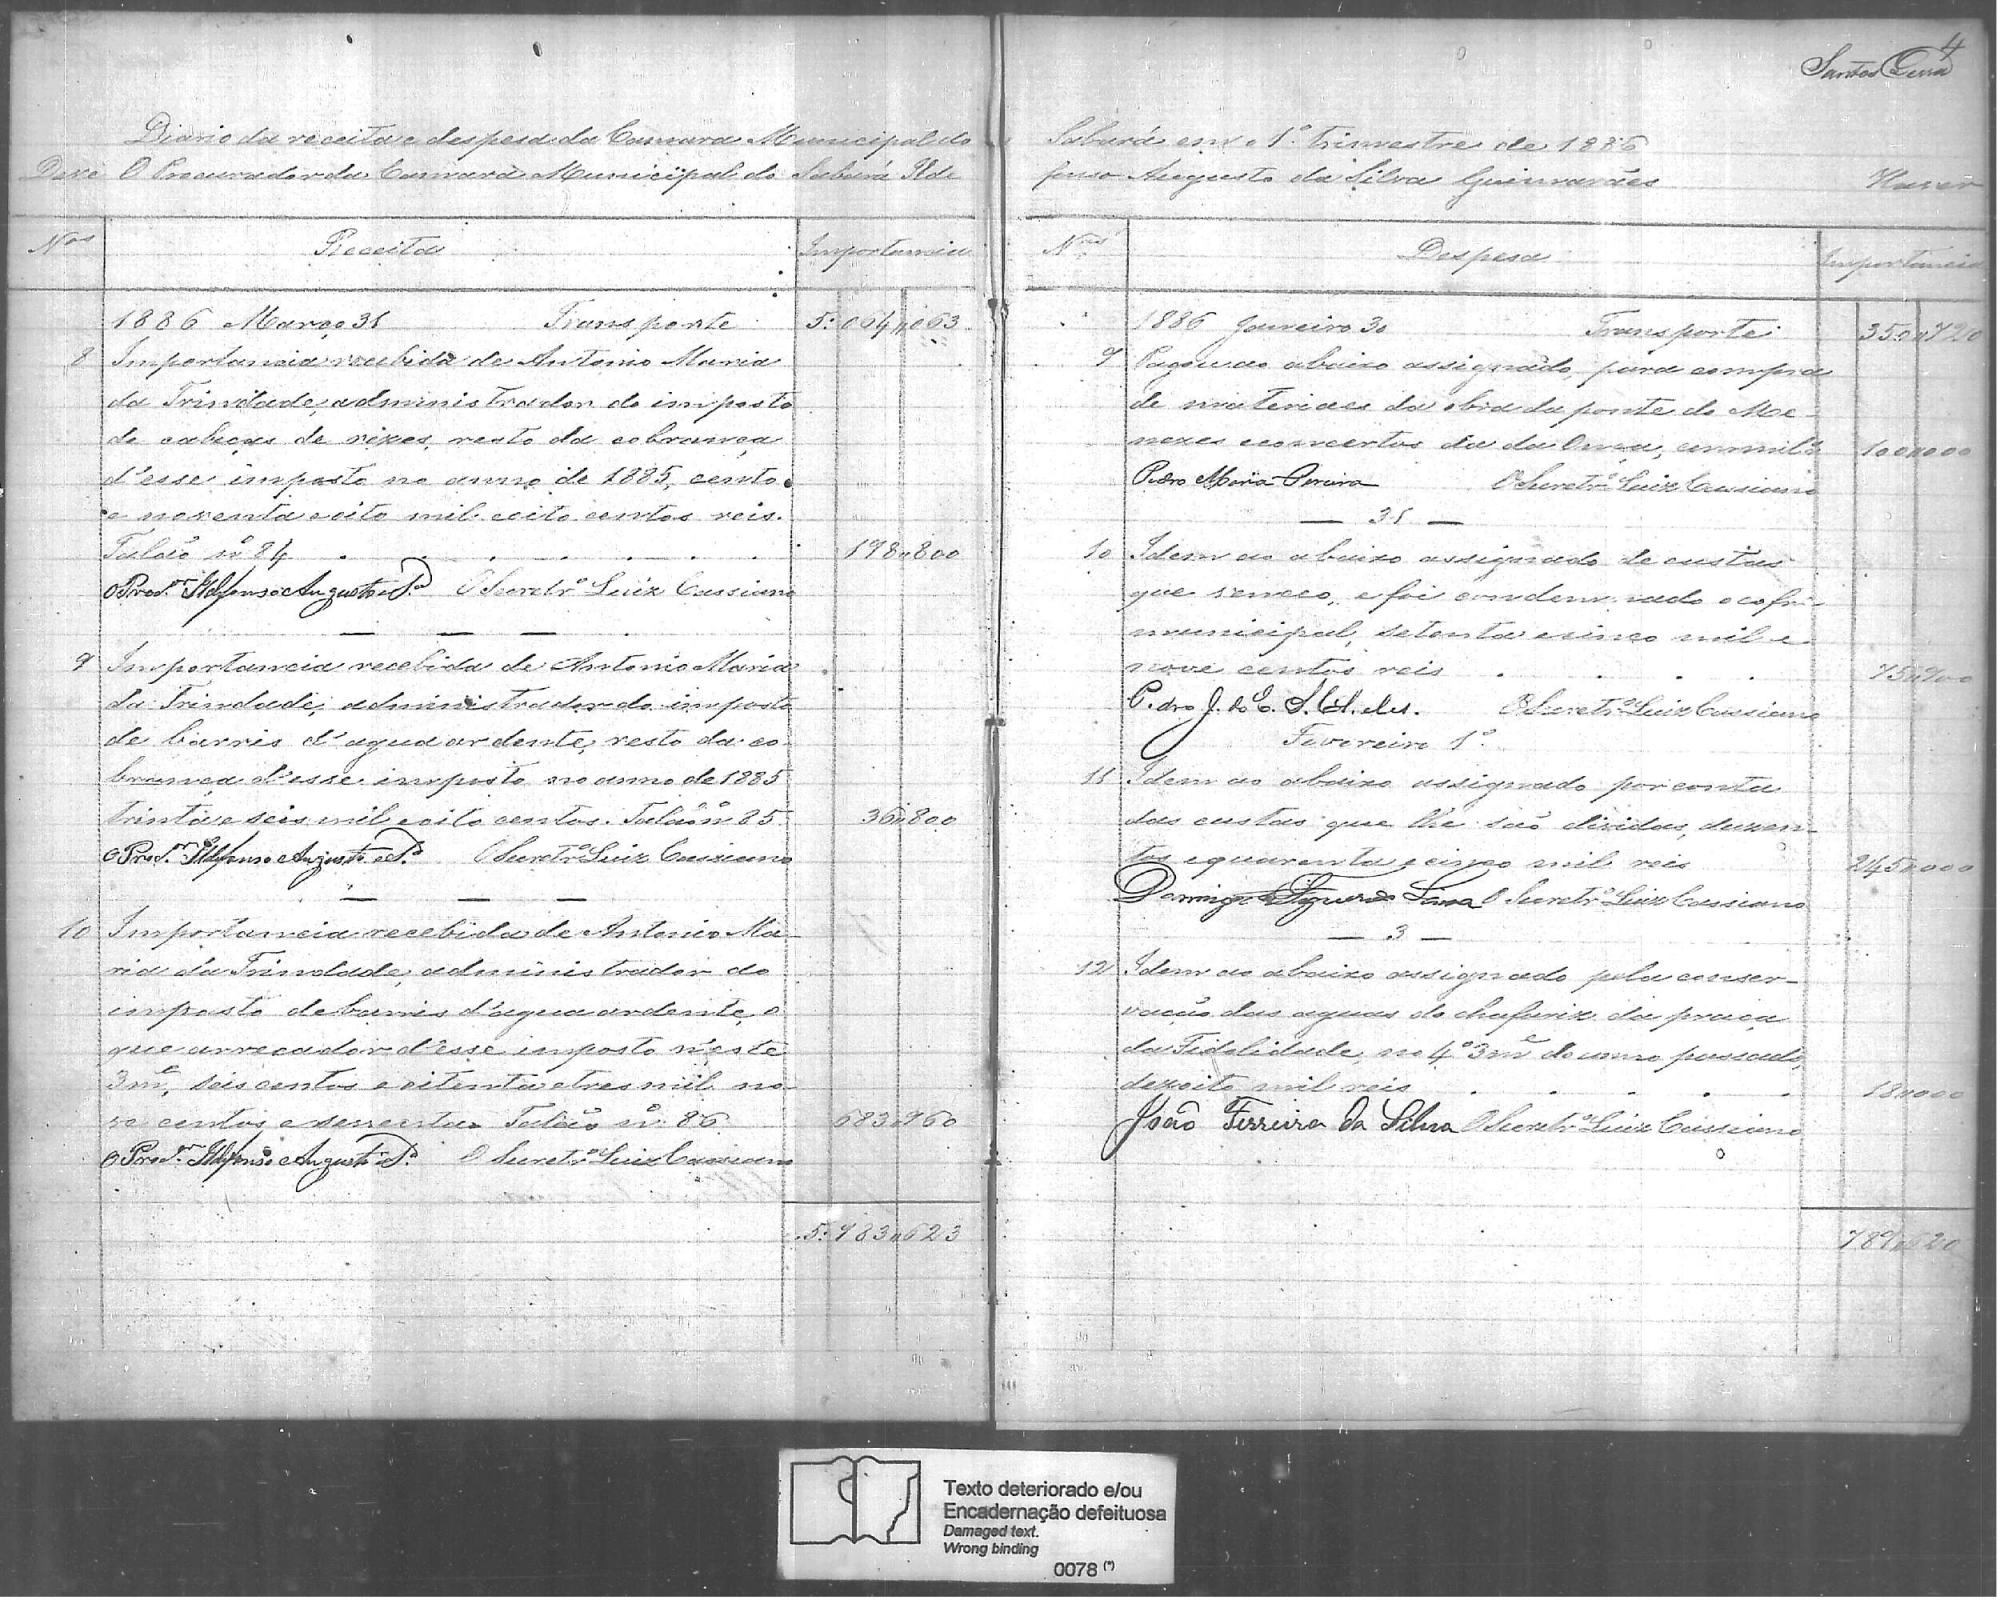 4
Santos Lima
Diario da receita e despesa da Camara Municipal do
Deve O Procurador da Camara Municipal do Sabará Ilde
Nos Receita Importancia
1886 Março 31 Transporte 5:064"063
8 Importancia recebida de Antonio Maria
da Trindade, administrador do imposto
de cabeças de rezes, resto da cobrança
d'esse imposto no anno de 1885, cento
e noventa e oito mil e oito centos reis.
Talão nº 84 . . . . . . . 198"800
O Procor Ildefonso Augusto da Sa O Secretrº Luiz Cassiano
9 Importancia recebida de Antonio Maria
da Trindade, administrador do imposto
de barris d'aguaardente, resto da co-
brança d'esse imposto no anno de 1885
trinta e seis mil e oito centos. Talão nº 85 36"800
O Procor Ildefonso Augusto da Sa O Secretrº Luiz Cassiano
10 Importancia recebida de Antonio Ma-
ria da Trindade, administrador do
imposto de barris d'aguaardente, o
que arrecadou d'esse imposto n'este
3mê, seis centos e oitenta e tres mil no-
ve centos e sessenta. Talão nº 86 683"960
O Procor Ildefonso Augusto da Sa O Secretrº Luiz Cassiano
5:983"623
Sabará em o 1º trimestre de 1886
fonso Augusto da Silva Guimarães Haver
Nos Despesa Importancia
1886 Janeiro 30 Transporte 350"720
9 Pagou ao abaixo assignado, para compra
de materiaes da obra da ponte do Me-
nezes e concertos da da Onça, cem mil rs 100"000
Pedro Maria Pereira O Secretrº Luiz Cassiano
— 31 —
10 Idem ao abaixo assignado de custas
que venceo, e foi condemnado o cofre
municipal, setenta e sinco mil e
nove centos reis . . . . 75"900
Pedro J. de O Secretrº Luiz Cassiano
Fevereiro 1º
11 Idem ao abaixo assignado por conta
das custas que lhe são dividas, duzen-
tos e quarenta e cinco mil reis 245"000
Domingos de Figueredo Lima O Secretrº Luiz Cassiano
— 3 —
12 Idem ao abaixo assignado pela conser-
vação das aguas do chafariz da praça
da Fidelidade, no 4º 3mê do anno passado,
dezoito mil reis . . . . . 18"000
João Ferreira da Silva O Secretrº Luiz Cassiano
789"620
Texto deteriorado e/ou
Encadernação defeituosa
Damaged text.
Wrong binding
0078 (*)